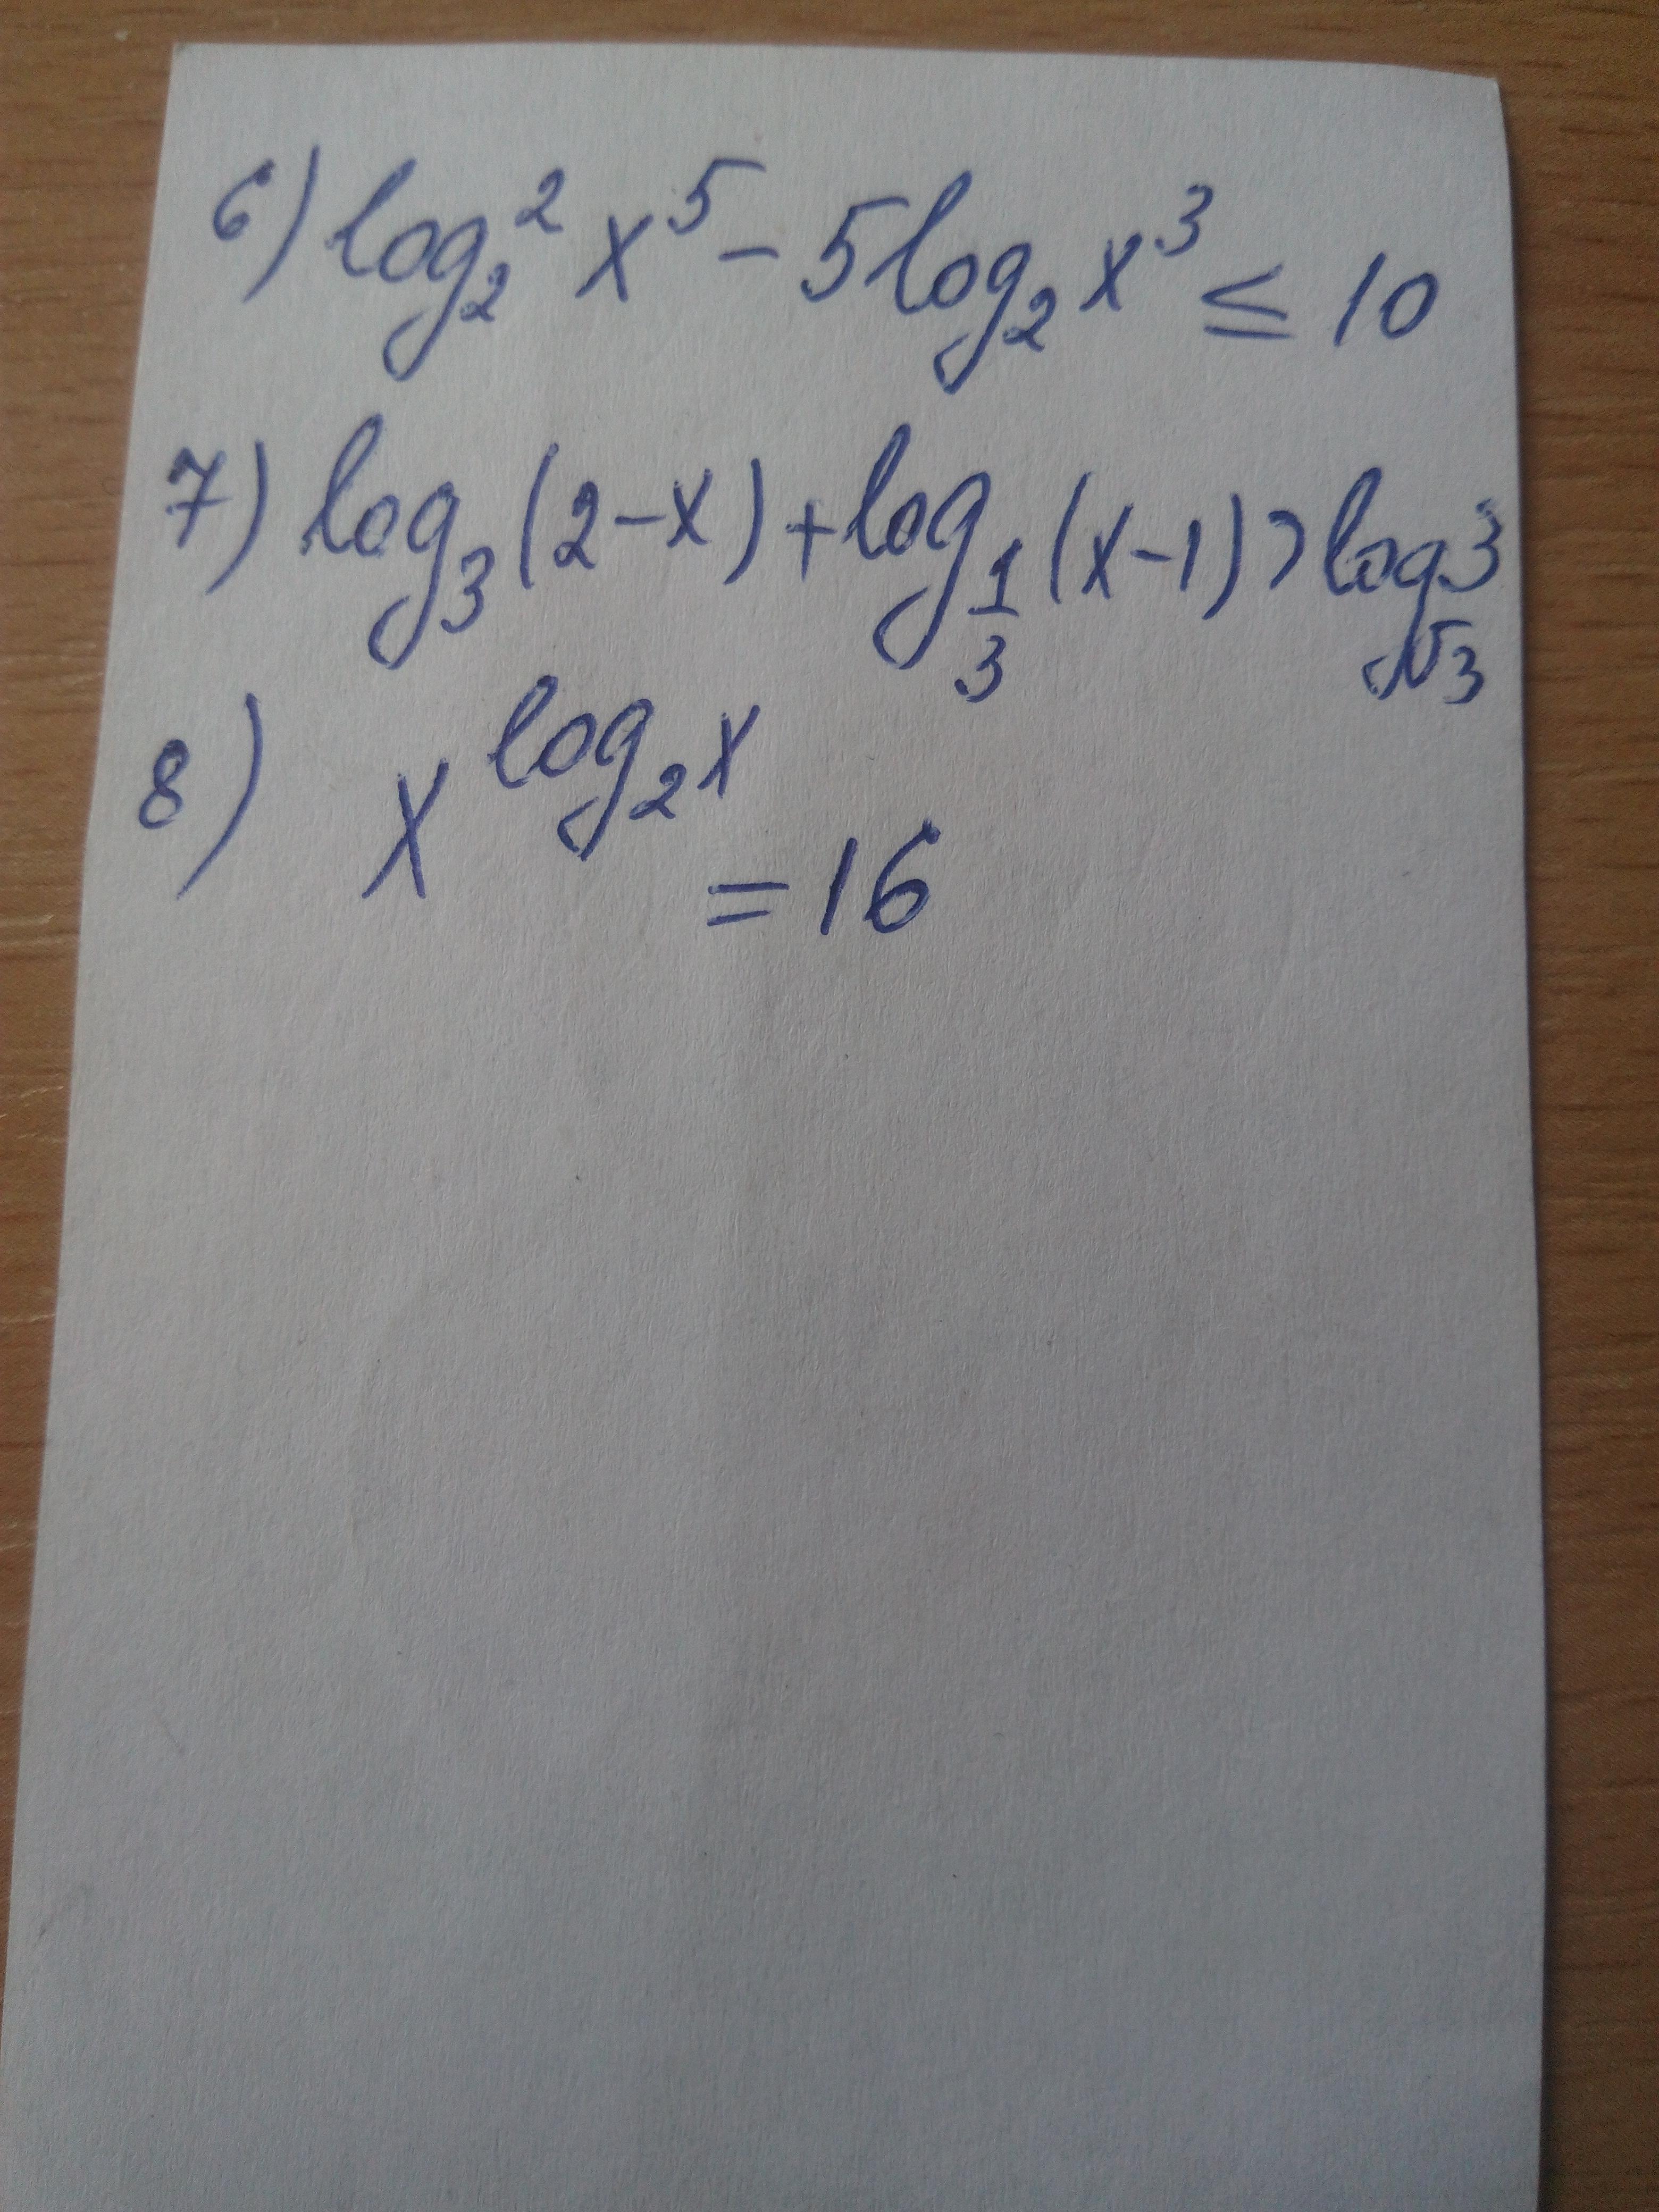 6) log₂² x⁵ - 5log₂ x³ ≤ 10
7) log₃ (2-x) + log_{1/3} (x-1) > log_{√3} 3
8) x^{log₂ x} = 16